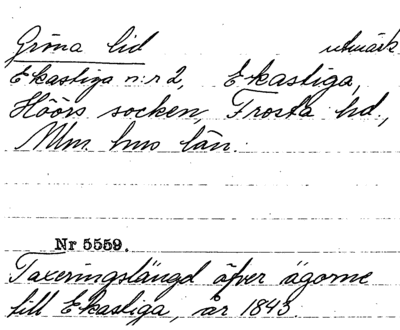 Gröna lid utmärk
Ekastiga n:r 2, Ekastiga,
Höörs socken, Frosta hd.,
Mlm. hus län.
Nr 5559.
Taxeringslängd öfver ägorne
till Ekastiga, år 1843.